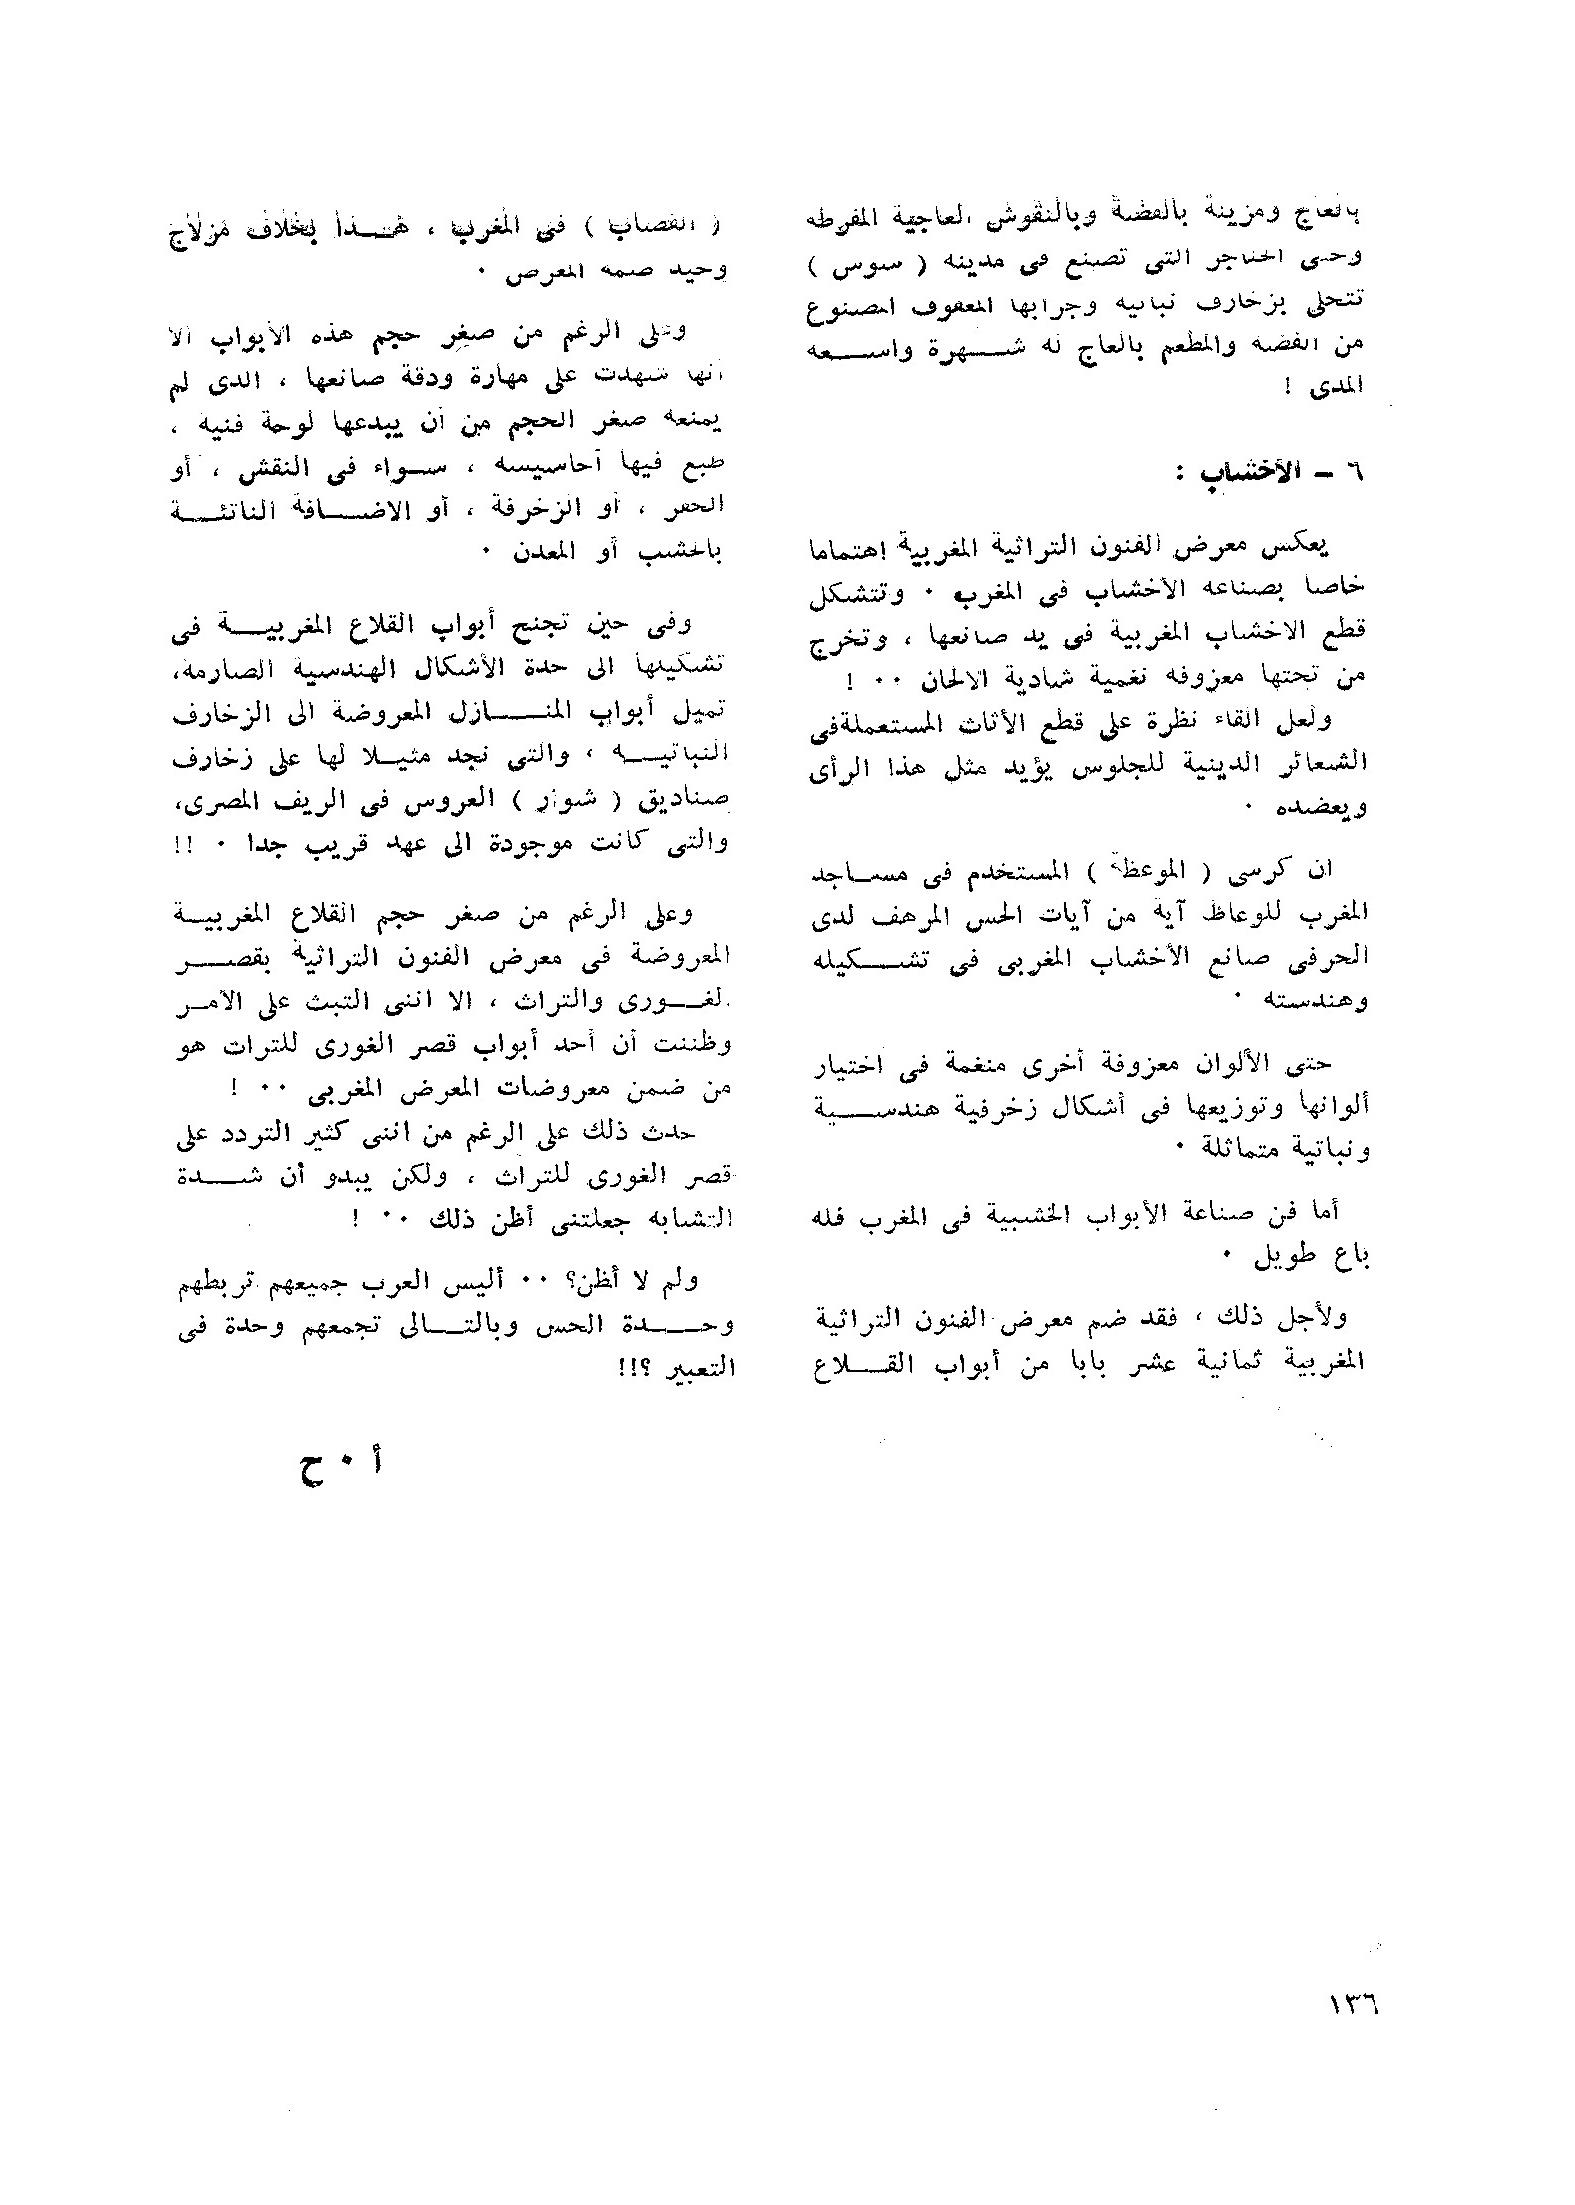 بالعاج ومزينة بالفضة وبالنقوش العاجية المفرطه
وحتى الخناجر التى تصنع فى مدينه ( سوس )
تتحلى بزخارف نباتيه وجرابها المعقوف المصنوع
من الفضه والمطعم بالعاج له شهرة واسعه
المدى !
٦ – الأخشاب :
يعكس معرض الفنون التراثية المغربية اهتماما
خاصا بصناعه الأخشاب فى المغرب ٠ وتتشكل
قطع الاخشاب المغربية فى يد صانعها ، وتخرج
من تحتها معزوفه نغمية شادية الالحان ٠٠ !
ولعل القاء نظرة على قطع الأثاث المستعملة فى
الشعائر الدينية للجلوس يؤيد مثل هذا الرأى
ويعضده ٠
ان كرسى ( الموعظة ) المستخدم فى مساجد
المغرب للوعاظ آية من آيات الحس المرهف لدى
الحرفى صانع الأخشاب المغربى فى تشكيله
وهندسته ٠
حتى الألوان معزوفة أخرى منغمة فى اختيار
ألوانها وتوزيعها فى أشكال زخرفية هندسية
ونباتية متماثلة ٠
أما فن صناعة الأبواب الخشبية فى المغرب فله
باع طويل ٠
ولأجل ذلك ، فقد ضم معرض الفنون التراثية
المغربية ثمانية عشر بابا من أبواب القلاع
( القصاب ) فى المغرب ، هذا بخلاف مزلاج
وحيد ضمه المعرض ٠
وعلى الرغم من صغر حجم هذه الأبواب الا
أنها شهدت على مهارة ودقة صانعها ، الذى لم
يمنعه صغر الحجم من أن يبدعها لوحة فنية ،
طبع فيها أحاسيسه ، سواء فى النقش ، أو
الحفر ، أو الزخرفة ، أو الاضافة الناتئة
بالخشب أو المعدن ٠
وفى حين تجنح أبواب القلاع المغربية فى
تشكيلها الى حدة الأشكال الهندسية الصارمه،
تميل أبواب المنازل المعروضة الى الزخارف
النباتيه ، والتى نجد مثيلا لها على زخارف
صناديق ( شوار ) العروس فى الريف المصرى،
والتى كانت موجودة الى عهد قريب جدا ٠ !!
وعلى الرغم من صغر حجم القلاع المغربية
المعروضة فى معرض الفنون التراثية بقصر
الغورى والتراث ، الا اننى التبث على الأمر
وظننت أن أحد أبواب قصر الغورى للتراث هو
من ضمن معروضات المعرض المغربى ٠٠ !
حدث ذلك على الرغم من اننى كثير التردد على
قصر الغورى للتراث ، ولكن يبدو أن شدة
التشابه جعلتنى أظن ذلك ٠٠ !
ولم لا أظن؟ ٠٠ أليس العرب جميعهم تربطهم
وحدة الحس وبالتالى تجمعهم وحدة فى
التعبير ؟!!
أ ٠ ح
١٣٦